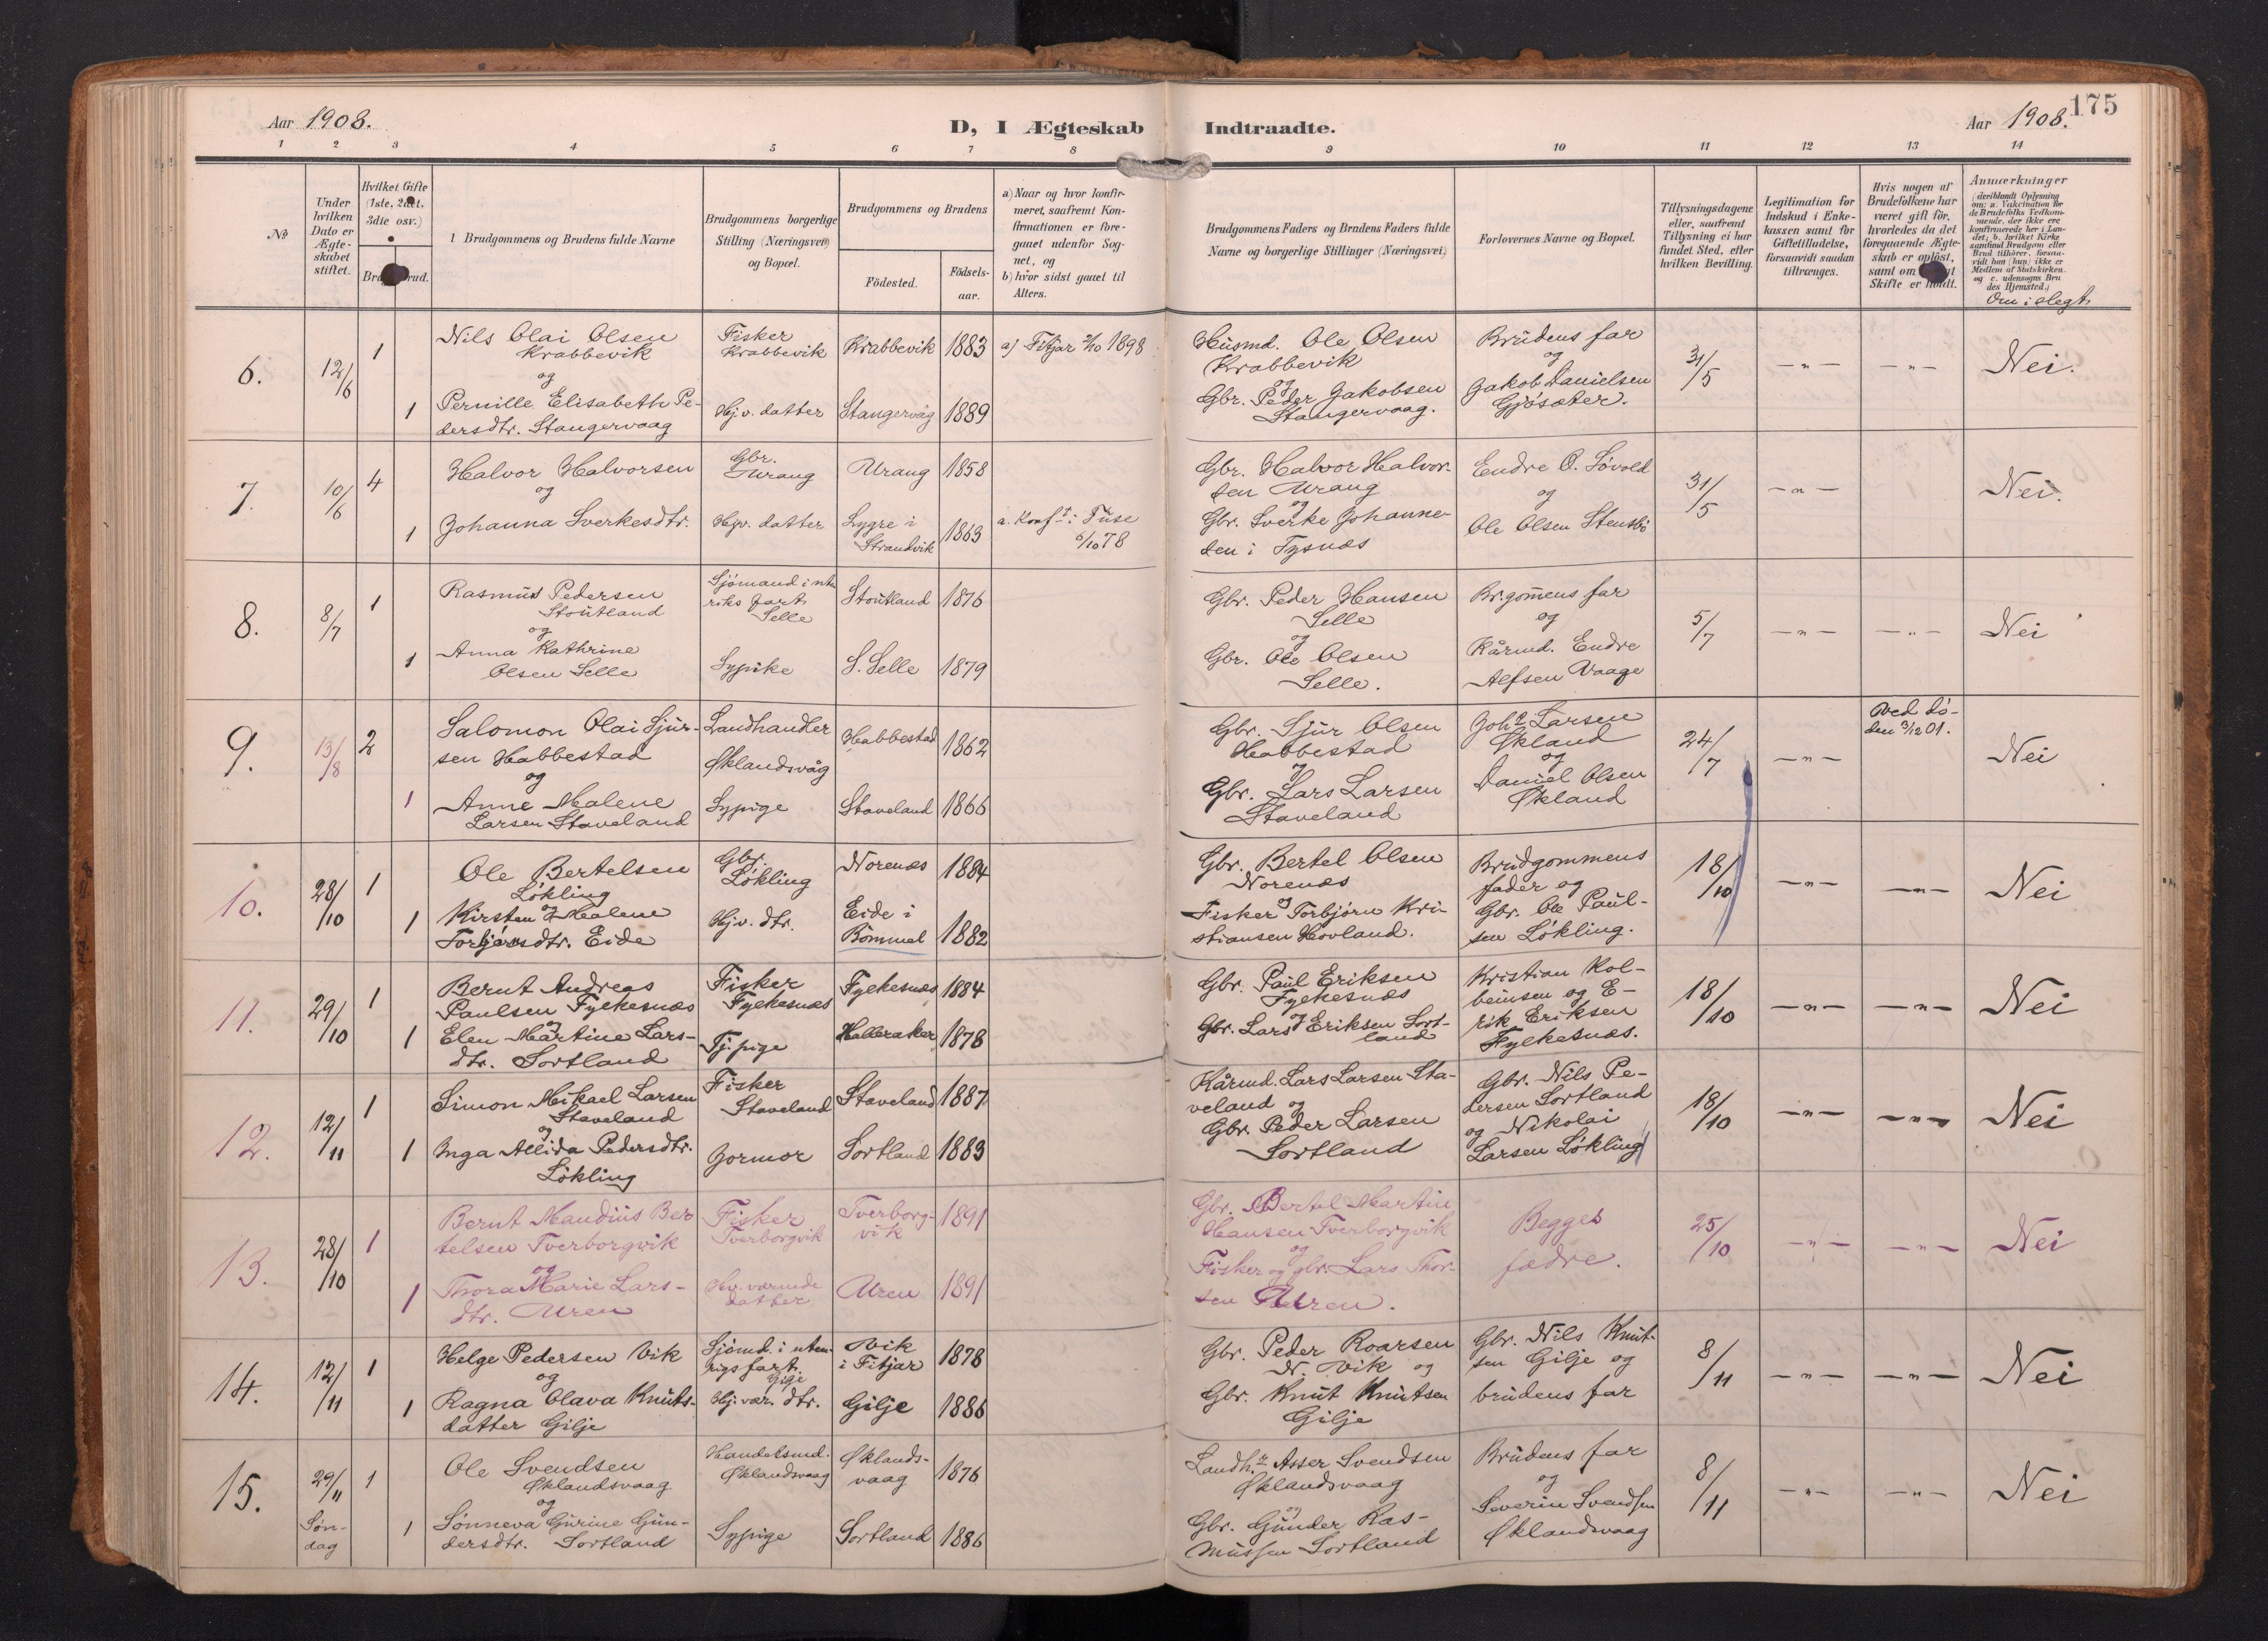 175
Aar 1908.
D, I Ægteskab Indtraadte.
Aar 1908.
1 2 3 4 5 6 7 8 9 10 11 12 13 14
No
Under
hvilken
Dato er
Ægte-
skabet
stiftet.
Hvilket Gifte
(1ste, 2det,
3die osv.)
Brud.
1 Brudgommens og Brudens fulde Navne
Brudgommens borgerlige
Stilling (Næringsvei)
og Bopæl.
Brudgommens og Brudens
Födested.
Födsels-
aar.
a) Naar og hvor konfir-
meret, saafremt Kon-
firmationen er fore-
gaaet udenfor Sog-
net, og
b) hvor sidst gaaet til
Alters.
Brudgommens Faders og Brudens Faders fulde
Navne og borgerlige Stillinger (Næringsvei)
Forlovernes Navne og Bopæl.
Tillysningsdagene
eller, saafremt
Tillysning ei har
fundet Sted, efter
hvilken Bevilling.
Legitimation for
Indskud i Enke-
kassen samt for
Giftetilladelse,
forsaavidt saadan
tiltrænges.
Hvis nogen af
Brudefolkene har
været gift för,
hvorledes da det
foregaaende Ægte-
skab er oplöst,
samt om
Skifte er holdt.
Anmærkninger
(deriblandt Oplysning
om: a. Vakcination for
de Brudefolks Vedkom-
mende, der ikke ere
konfirmerede her i Lan-
det; b. hvilket Kirke
samfund Brudgom eller
Brud tilhörer, forsaa-
vidt han (hun) ikke er
Medlem af Statskirken.
og c. udensogns Bru
des Hjemsted.)
Om i slegt
6.
12/6
1
Nils Olai Olsen
Krabbevik
og
1
Pernille Elisabeth Pe-
dersdtr. Stangervaag
Fisker
Krabbevik
Hj.v. datter
Krabbevik 1883
Stangervåg 1889
a) Fitjar 2/10 1898
Husmd. Ole Olsen
Krabbevik
og
Gbr. Peder Jakobsen
Stangervaag.
Brudens far
og
Jakob Danielsen
Gjøsæter.
31/5
— " —
— " —
Nei.
7.
10/6
4
Halvor Halvorsen
og
1
Johanna Sverkesdtr.
Gbr.
Urang
Hjv. datter
Urang 1858
Lygre i
Strandvik 1863
a. Konf.t i Fuse
6/10 78
Gbr. Halvor Halvor-
sen Urang
og
Gbr. Sverke Johanne-
sen i Tysnæs
Endre O. Løvold
og
Ole Olsen Stensbø
31/5
— " —
Nei.
8.
8/7
1
Rasmus Pedersen
Stoutland
og
1
Anna Kathrine
Olsen Selle
Sjömand i uten
riks fart
Selle
Sypike
Stoutland 1876
S. Selle 1879
Gbr. Peder Hansen
Selle
og
Gbr. Ole Olsen
Selle.
Br.gom̄ens far
og
Kårmd. Endre
Alfsen Vaage
5/7
— " —
— " —
Nei
9.
13/8
2
Salomon Olai Sjur-
sen Habbestad
og
1
Anne Malene
Larsen Staveland
Landhandler
Øklandsvåg
Sypige
Habbestad 1862
Staveland 1866
Gbr. Sjur Olsen
Habbestad
og
Gbr. Lars Larsen
Staveland
Joh.s Larsen
Økland
og
Daniel Olsen
Økland
24/7
— " —
Ved dö-
den 3/12 01.
Nei
10.
28/10
1
Ole Bertelsen
Løkling
og
1
Kirsten Malene
Torbjørnsdtr. Eide
Gbr.
Løkling
Hj.v. dtr.
Norenæs 1884
Eide i
Bömmel 1882
Gbr. Bertel Olsen
Norenæs
og
Fisker Torbjørn Kri-
stiansen Hovland.
Brudgommens
fader og
Gbr. Ole Paul-
sen Løkling.
18/10
— " —
— " —
Nei
11.
29/10
1
Bernt Andreas
Paulsen Fylkesnæs
og
1
Elen Martine Lars-
dtr. Sortland
Fisker
Fylkesnæs
Tj. pige
Fylkesnæs 1884
Halleraker 1878
Gbr. Paul Eriksen
Fylkesnæs
og
Gbr. Lars Eriksen Sort-
land
Kristian Kol-
beinsen og E-
rik Eriksen
Fylkesnæs.
18/10
— " —
— " —
Nei
12.
12/11
1
Simon Mikael Larsen
Staveland
og
1
Inga Allida Pedersdtr.
Løkling
Fisker
Staveland
Jormor
Staveland 1887
Sortland 1883
Kårmd. Lars Larsen Sta-
veland og
Gbr. Peder Larsen
Sortland
Gbr. Nils Pe-
dersen Sortland
og Nikolai
Larsen Løkling
18/10
— " —
— " —
Nei
13.
28/10
1
Bernt Mandius Ber
telsen Tverborgvik
og
1
Thora Marie Lars-
dtr. Uren
Fisker
Tverborgvik
Hj. værende
datter
Tverborg-
vik 1891
Uren 1891
Gbr. Bertel Martin
Hansen Tverborgvik
og
Fisker og gbr. Lars Thor-
sen Uren.
Begges
fædre.
25/10
— " —
— " —
Nei
14.
12/11
1
Helge Pedersen Vik
og
1
Ragna Olava Knuts-
datter Gilje
Sjömd. i uten-
rigsfart.
Hj. vær. dtr.
Vik
i Fitjar 1878
Gilje 1886
Gbr. Peder Roarsen
N. Vik og
Gbr. Knut Knutsen
Gilje
Gbr. Nils Knut-
sen Gilje og
brudens far
8/11
— " —
— " —
Nei
15.
29/11
Søn-
dag
1
Ole Svendsen
Øklandsvaag
og
1
Sønneva Gurine Gun-
dersdtr. Sortland
Handelsmd.
Øklandsvaag
Sypige
Øklands-
vaag 1876
Sortland 1886
Landh.r Asser Svendsen
Øklandsvaag
og
Gbr. Gunder Ras-
mussen Sortland
Brudens far
og
Severin Svendsen
Øklandsvaag
8/11
— " —
— " —
Nei